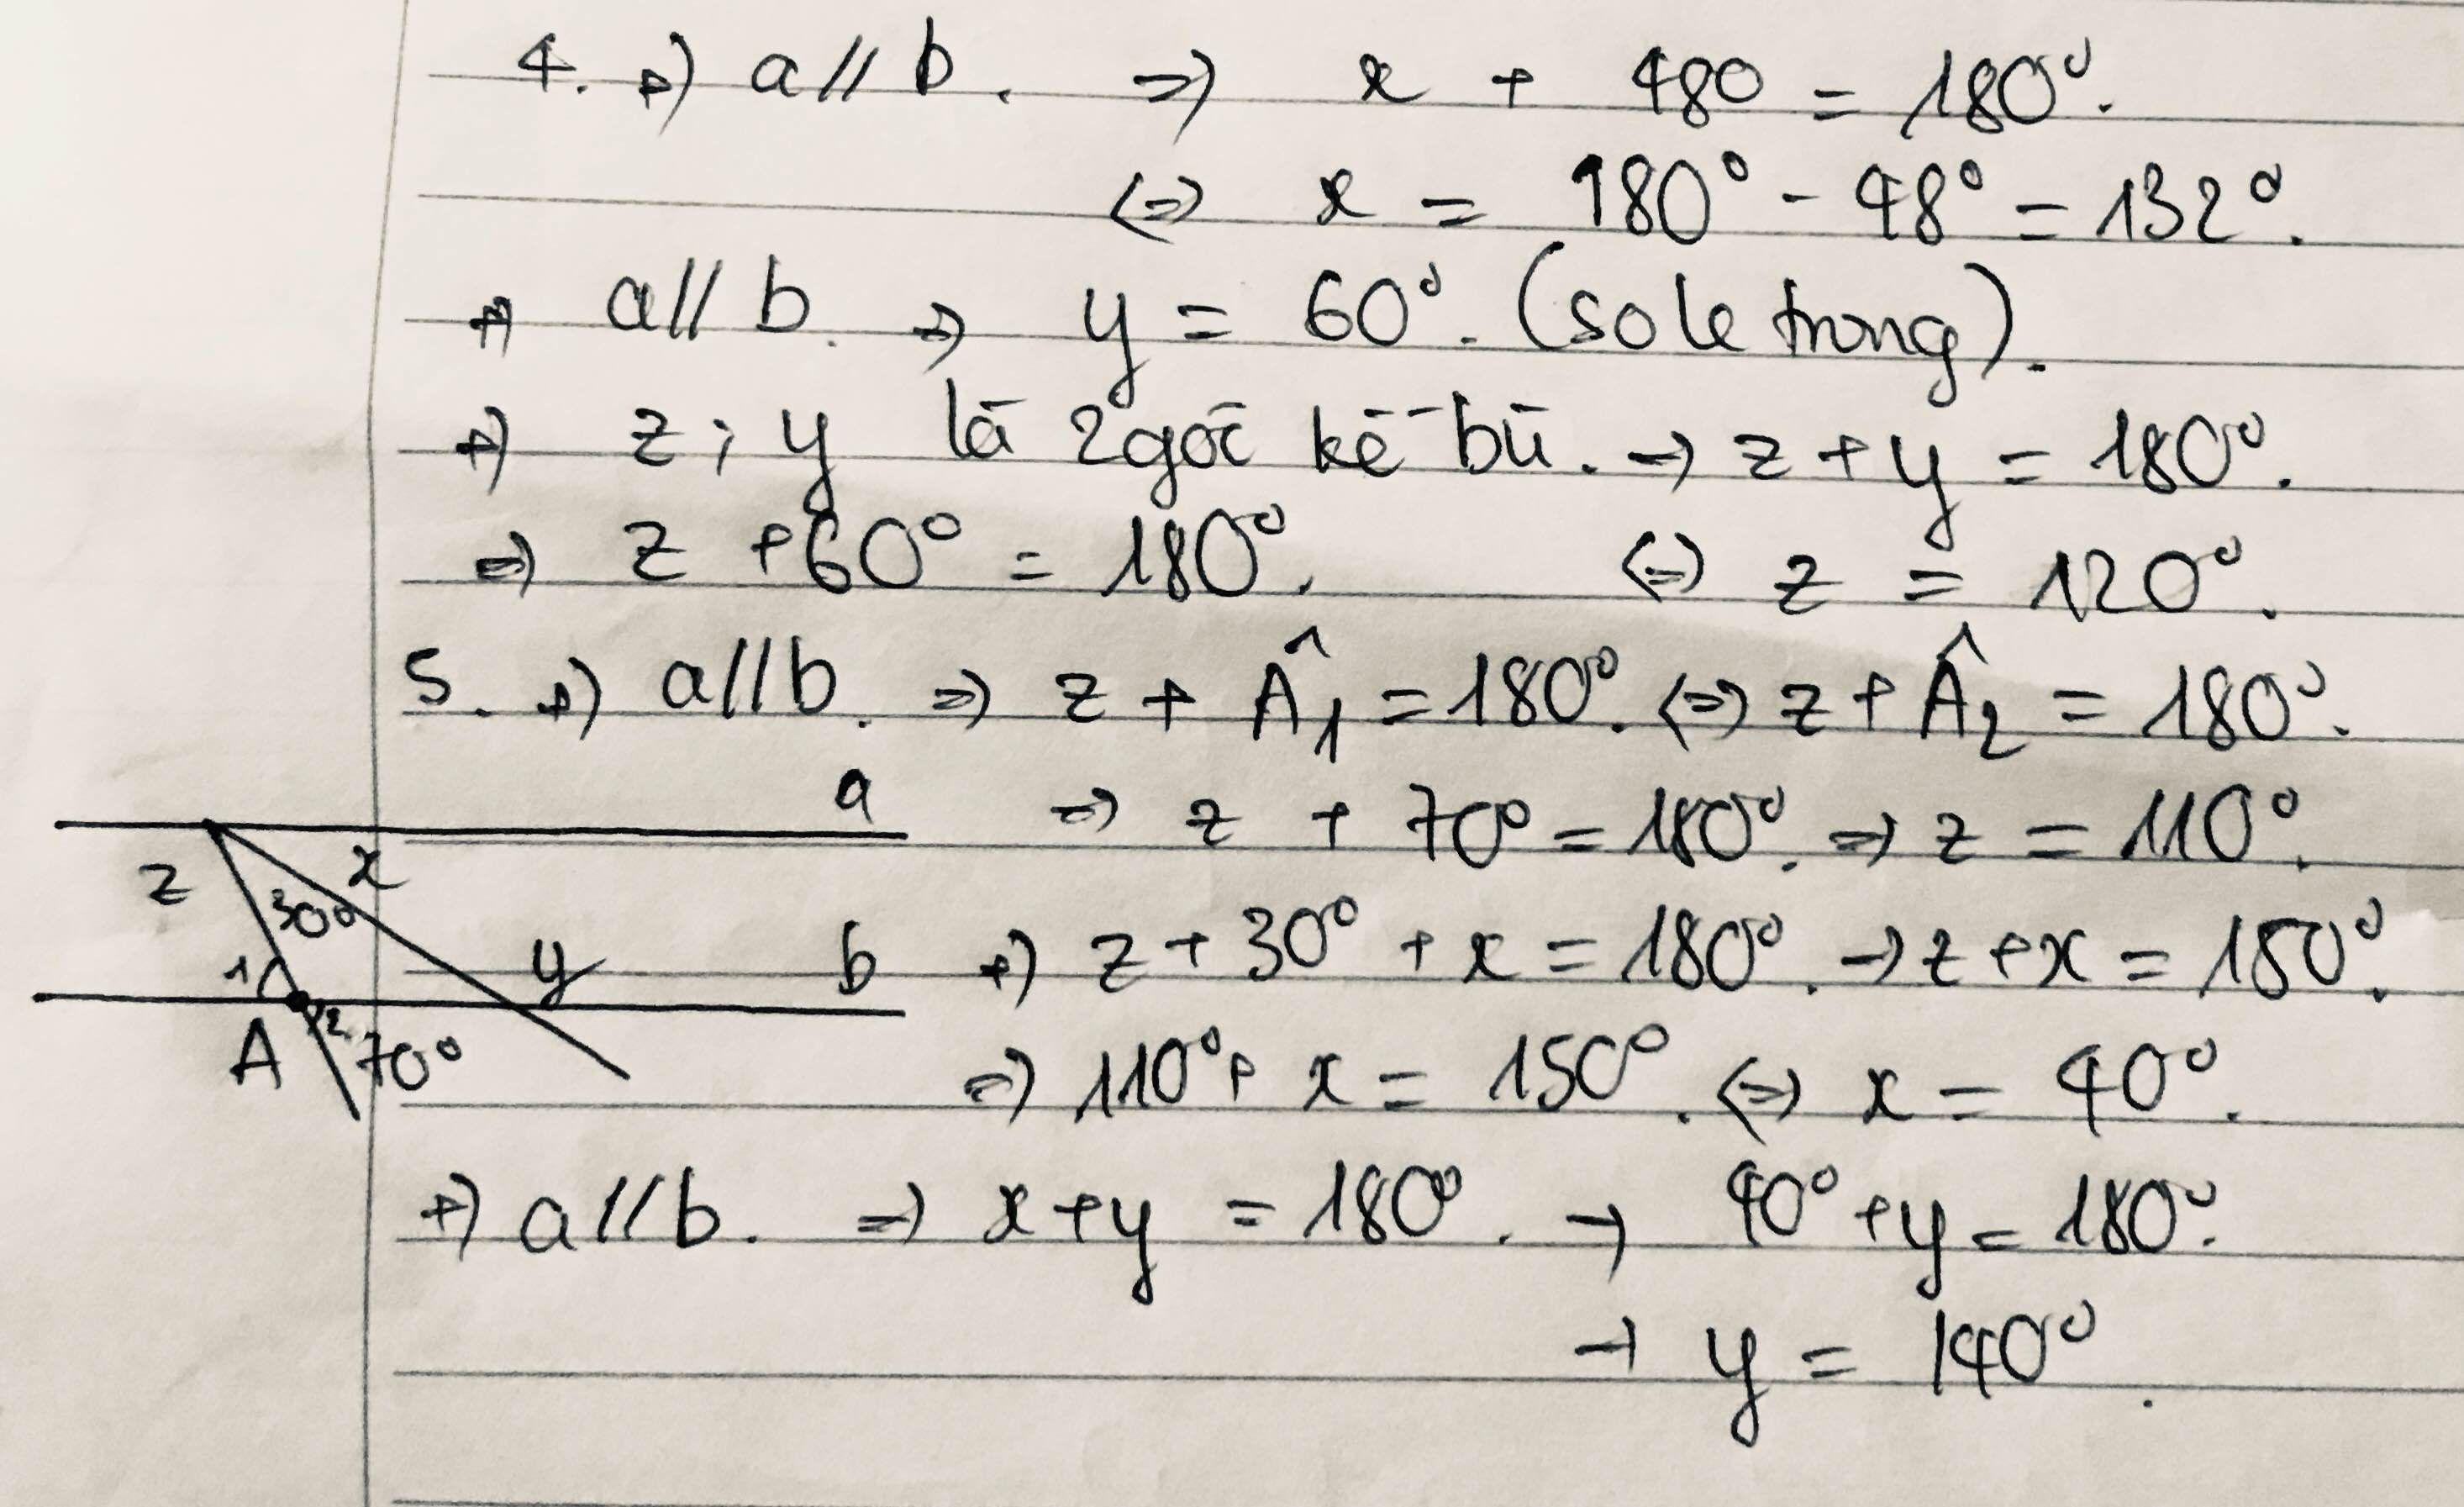 4. +) a // b. => x + 480 = 180°.
<=> x = 180° - 48° = 132°.
+) a // b. => y = 60°. (sole trong).
+) z ; y là 2 góc kề bù. -> z + y = 180°.
=> z + 60° = 180°. <=> z = 120°.
5. +) a // b. => z + Â1 = 180°. <=> z + Â2 = 180°.
=> z + 70° = 180°. => z = 110°.
+) z + 30° + x = 180°. -> z + x = 150°.
=> 110° + x = 150°. <=> x = 40°.
+) a // b. => x + y = 180°. -> 40° + y = 180°.
-> y = 140°.
a
z
x
30°
y
b
1
2
A
70°